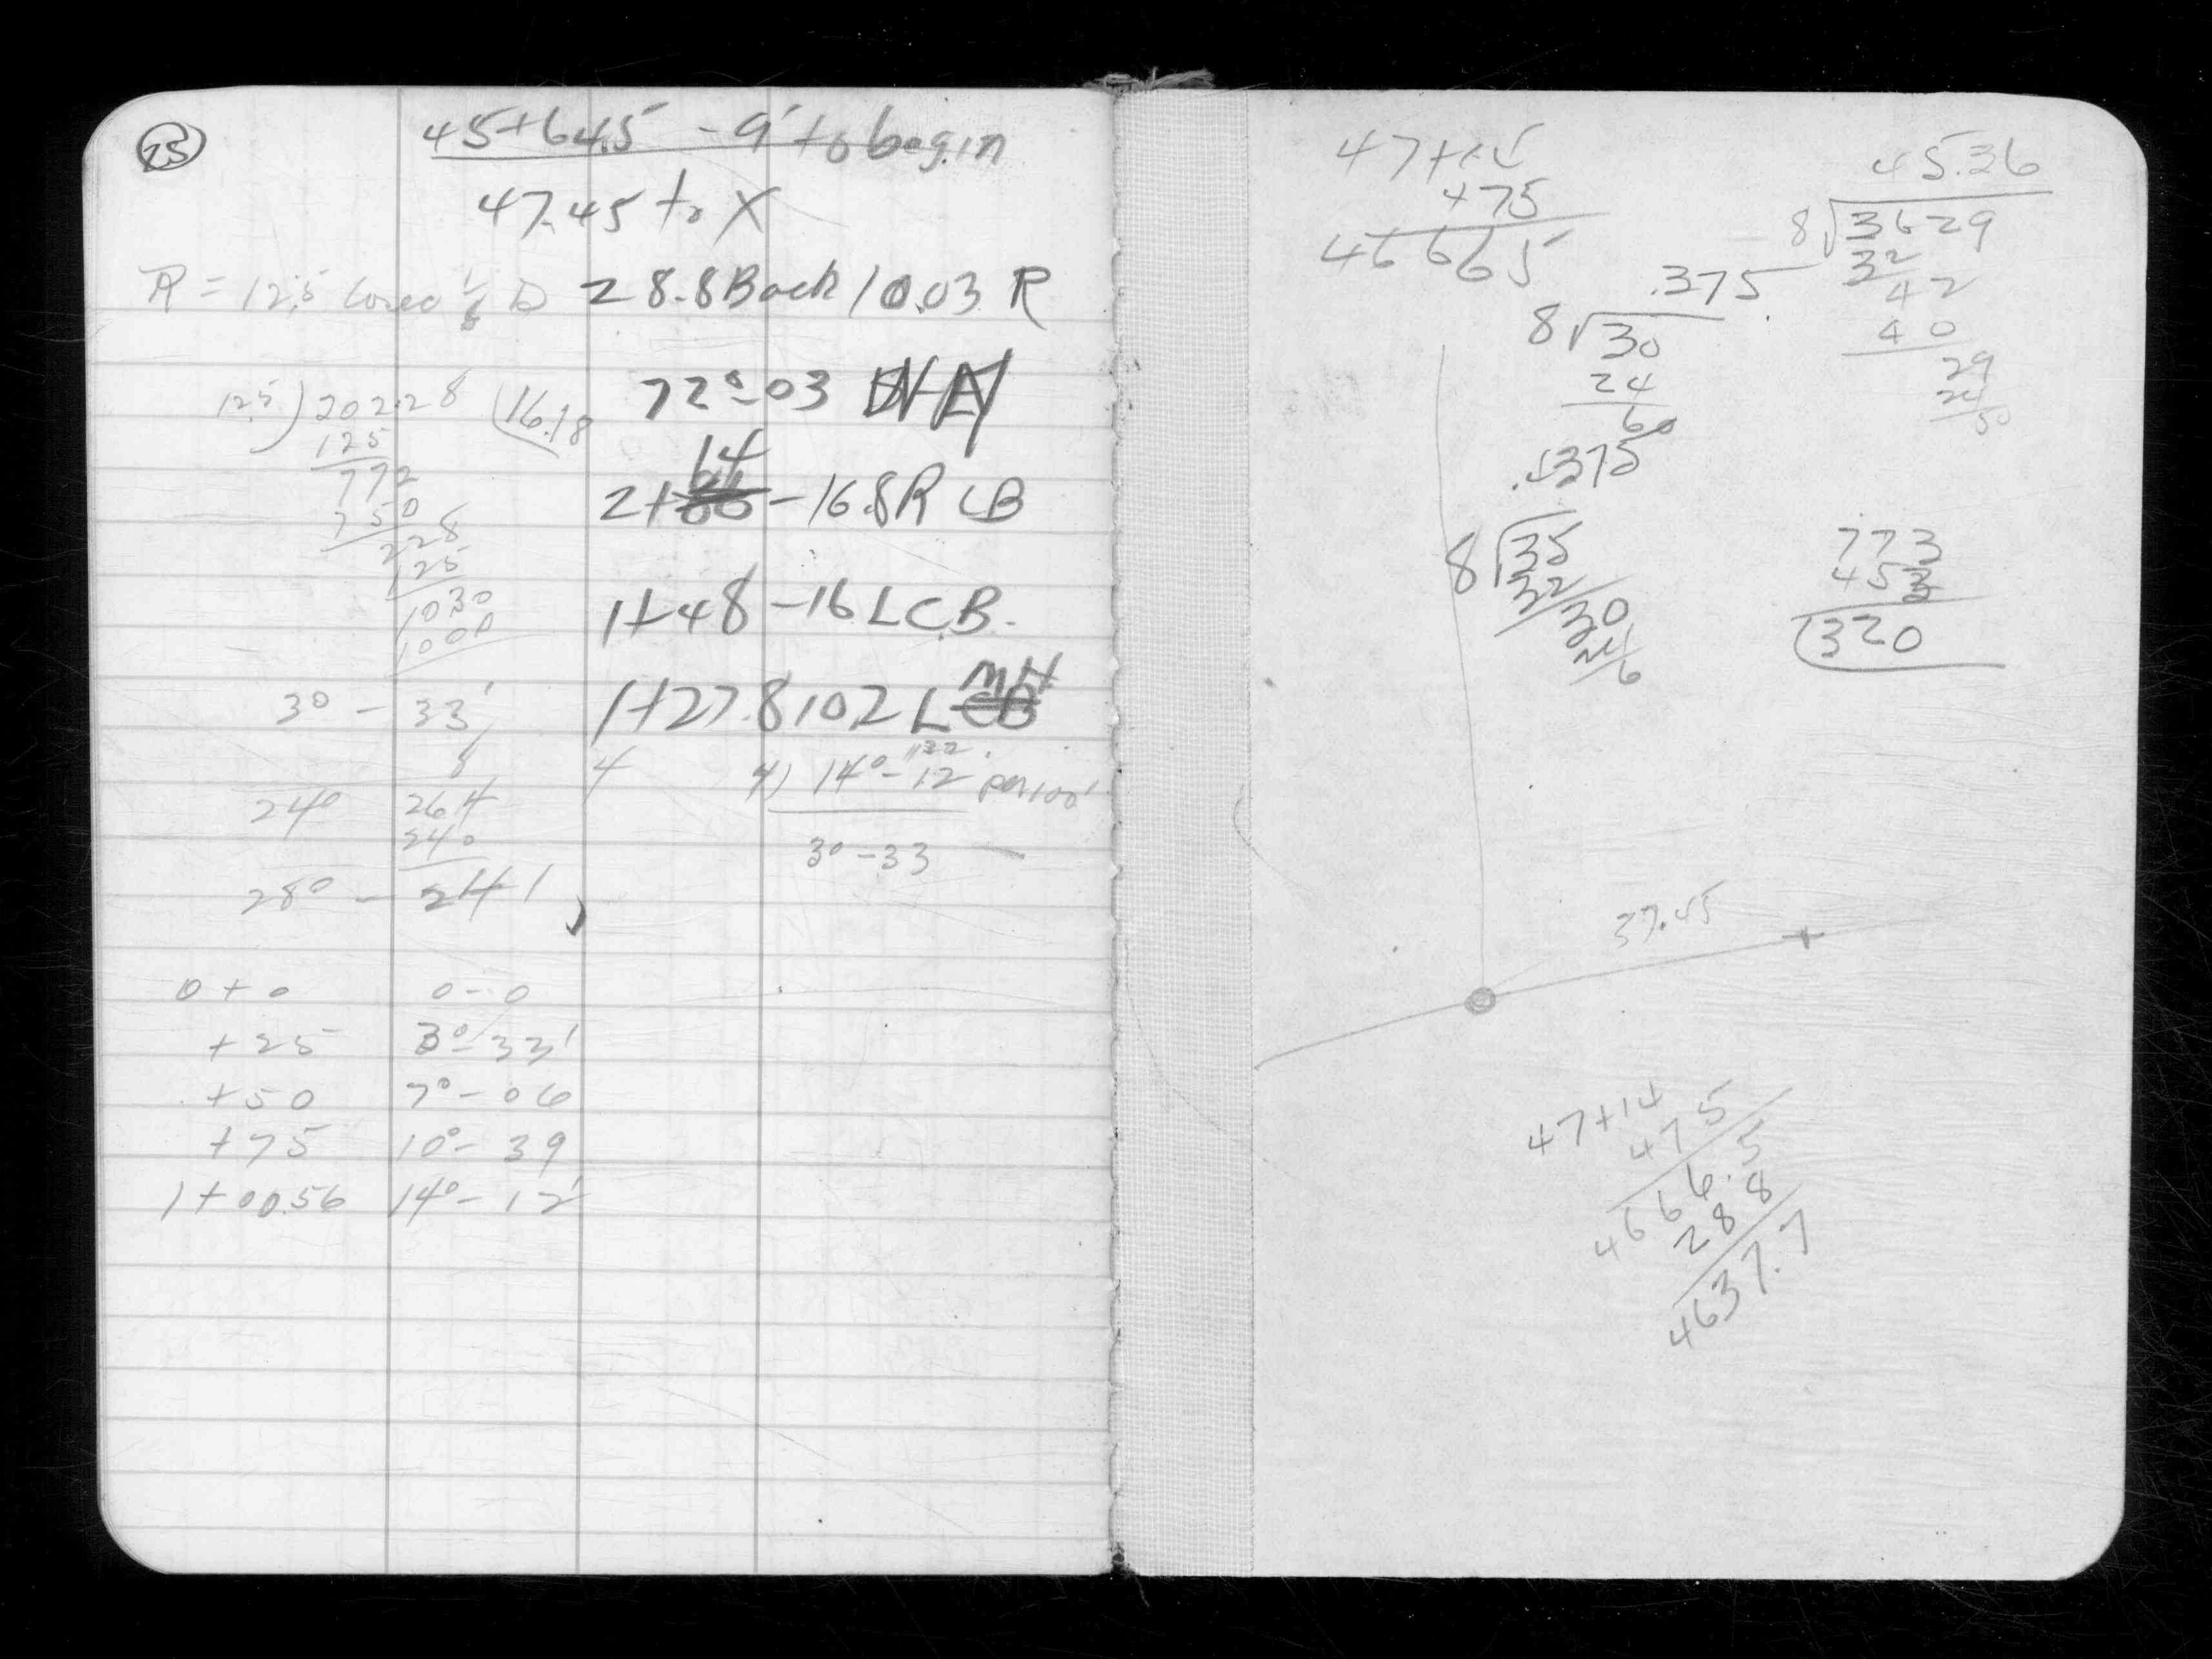 25
45+64.5 - 9' to begin
47.45 to X
R = 12.5 cosec ½ D
28.8 Back 10.03 R
12.5 ) 202.28 ( 16.18
125
772
750
228
125
1030
1000
72°-03
14
2+ - 16.8 R CB
1+48 - 16 L C.B.
MH
1+27.8 10.2 L CB
3° - 33'
8
24° 264
240
28° - 24'
4
4) 14°-12
3°-33
0+0 0-0
+25 3°-33'
+50 7°-06
+75 10°-39
1+00.56 14°-12'
47+
+75
46 665
45.36
8 3629
32
42
40
29
24
50
.375
8 30
24
60
.375
8 35
32
30
24
6
773
453
320
37.45
47+14
475
4666.5
288
4637.7